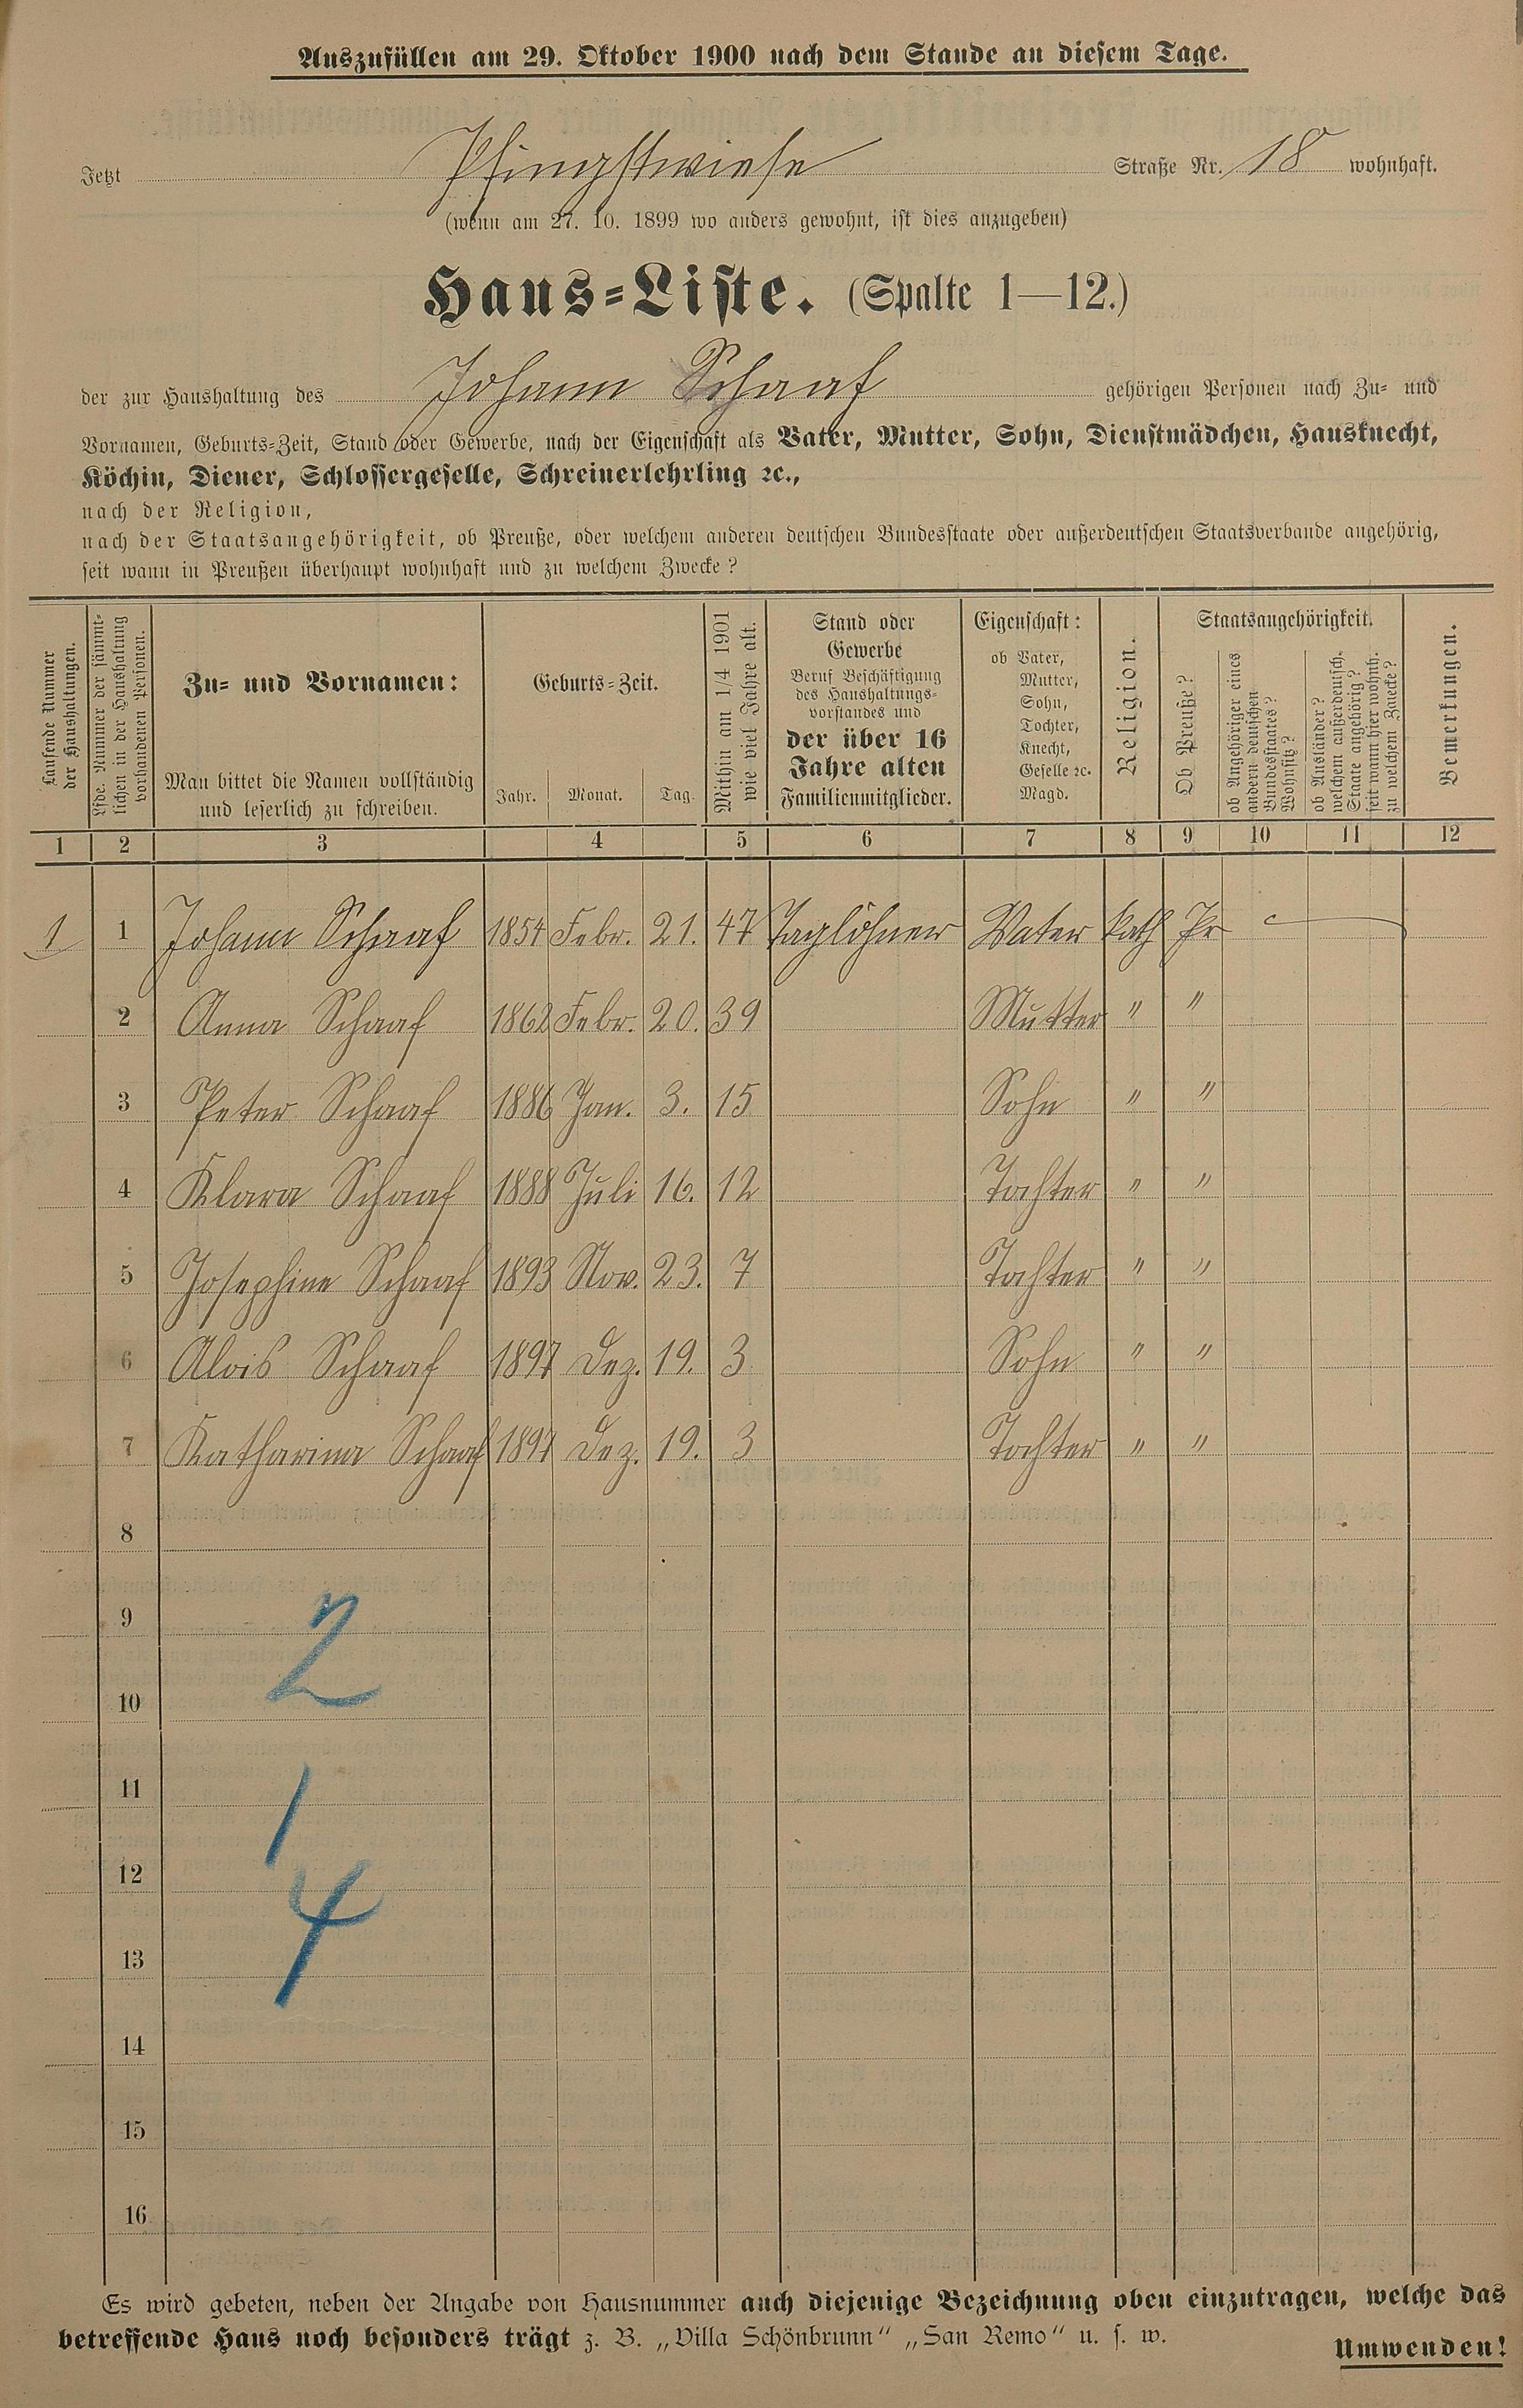 Auszufüllen am 29. Oktober 1900 nach dem Stande an diesem Tage.
Jetzt Pfingstwiese Straße Nr. 18 wohnhaft.
(wenn am 27. 10. 1899 wo anders gewohnt, ist dies anzugeben)
Haus-Liste. (Spalte 1—12.)
der zur Haushaltung des Johann Schaaf gehörigen Personen nach Zu- und
Vornamen, Geburts-Zeit, Stand oder Gewerbe, nach der Eigenschaft als Vater, Mutter, Sohn, Dienstmädchen, Hausknecht,
Köchin, Diener, Schlossergeselle, Schreinerlehrling ꝛc.,
nach der Religion,
nach der Staatsangehörigkeit, ob Preuße, oder welchem anderen deutschen Bundesstaate oder außerdeutschen Staatsverbande angehörig,
seit wann in Preußen überhaupt wohnhaft und zu welchem Zwecke?
Laufende Nummer
der Haushaltungen.
Lfde. Nummer der sämmt-
lichen in der Haushaltung
vorhandenen Personen.
Zu- und Vornamen:
Man bittet die Namen vollständig
und leserlich zu schreiben.
Geburts-Zeit.
Jahr. Monat. Tag.
Mithin am 1/4 1901
wie viel Jahre alt.
Stand oder
Gewerbe
Beruf Beschäftigung
des Haushaltungs-
vorstandes und
der über 16
Jahre alten
Familienmitglieder.
Eigenschaft:
ob Vater,
Mutter,
Sohn,
Tochter,
Knecht,
Geselle ꝛc.
Magd.
Religion.
Staatsangehörigkeit.
Ob Preuße?
ob Angehöriger eines
andern deutschen
Bundesstaates?
Wohnsitz?
ob Ausländer?
welchem außerdeutsch.
Staate angehörig?
seit wann hier wohnh.
zu welchem Zwecke?
Bemerkungen.
1 2 3 4 5 6 7 8 9 10 11 12
1 1 Johann Schaaf 1854 Febr. 21. 47 Taglöhner Vater kath Pr
2 Anna Schaaf 1862 Febr. 20. 39 Mutter " "
3 Peter Schaaf 1886 Jan. 3. 15 Sohn " "
4 Klara Schaaf 1888 Juli 16. 12 Tochter " "
5 Josephine Schaaf 1893 Nov. 23. 7 Tochter " "
6 Alois Schaaf 1897 Dez. 19. 3 Sohn " "
7 Katharina Schaaf 1897 Dez. 19. 3 Tochter " "
8
9
2
10
11
1
12
4
13
14
15
16
Es wird gebeten, neben der Angabe von Hausnummer auch diejenige Bezeichnung oben einzutragen, welche das
betreffende Haus noch besonders trägt z. B. „Villa Schönbrunn“ „San Remo“ u. s. w.
Umwenden!